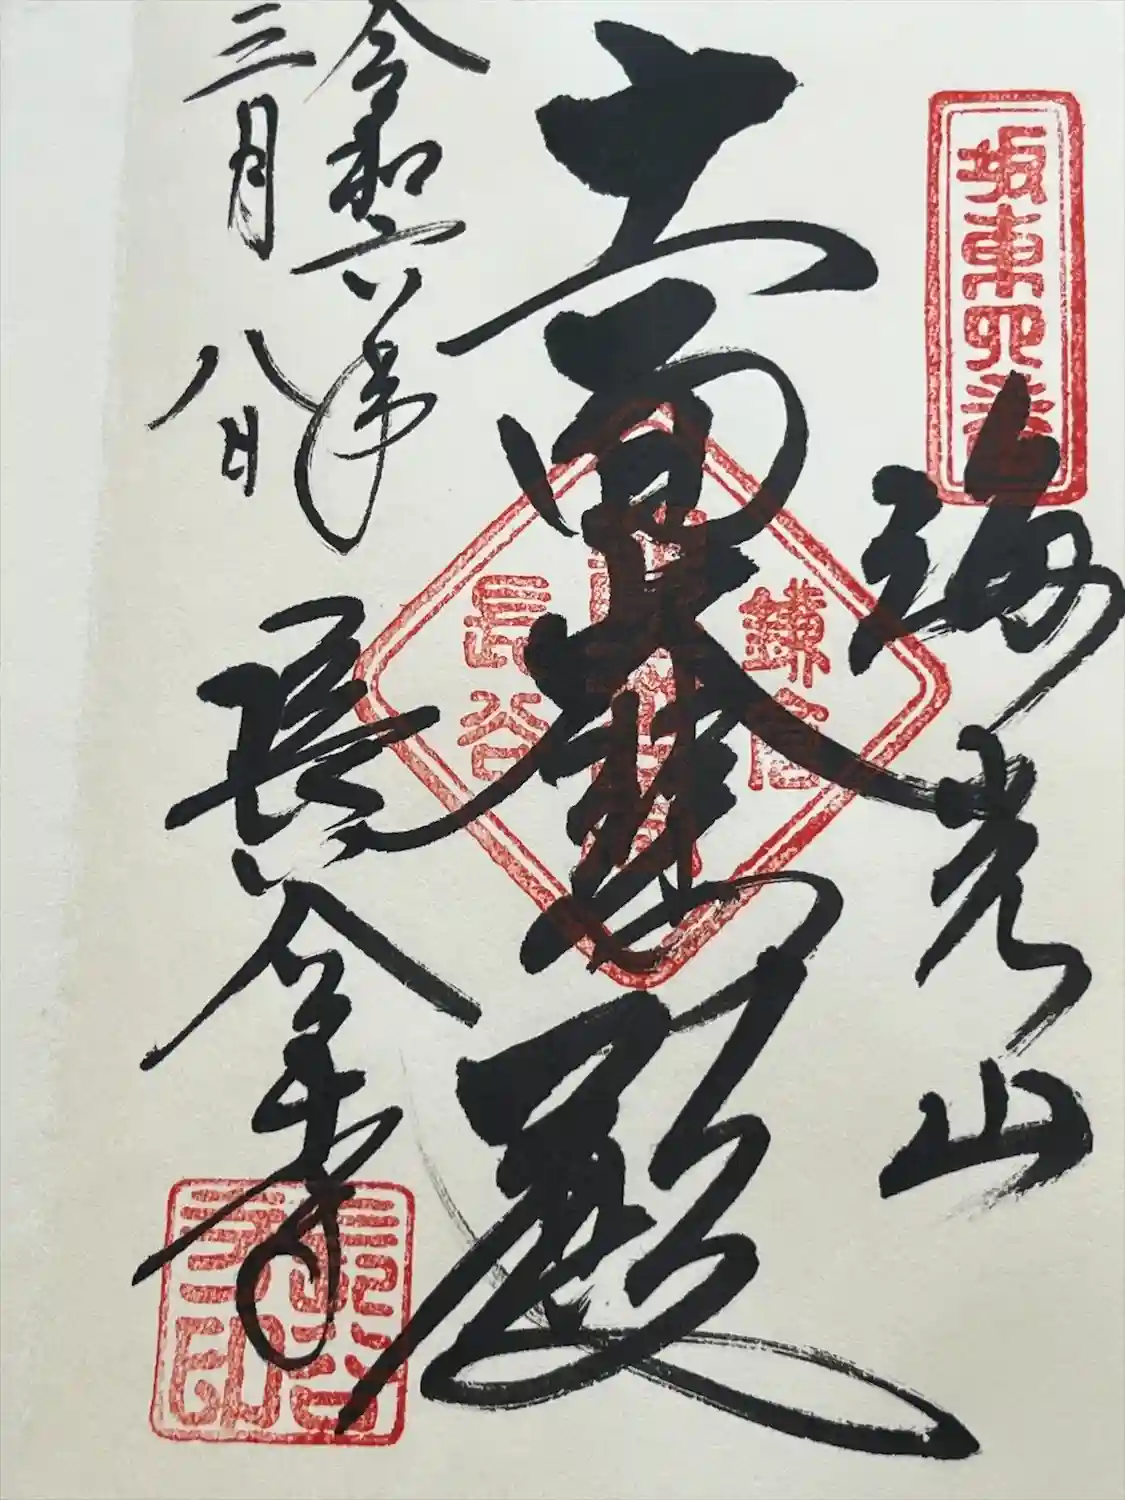 坂東四番
海光山
十一面大悲殿
鎌倉
長谷
令和六年
三月八日
長谷寺
長谷寺印